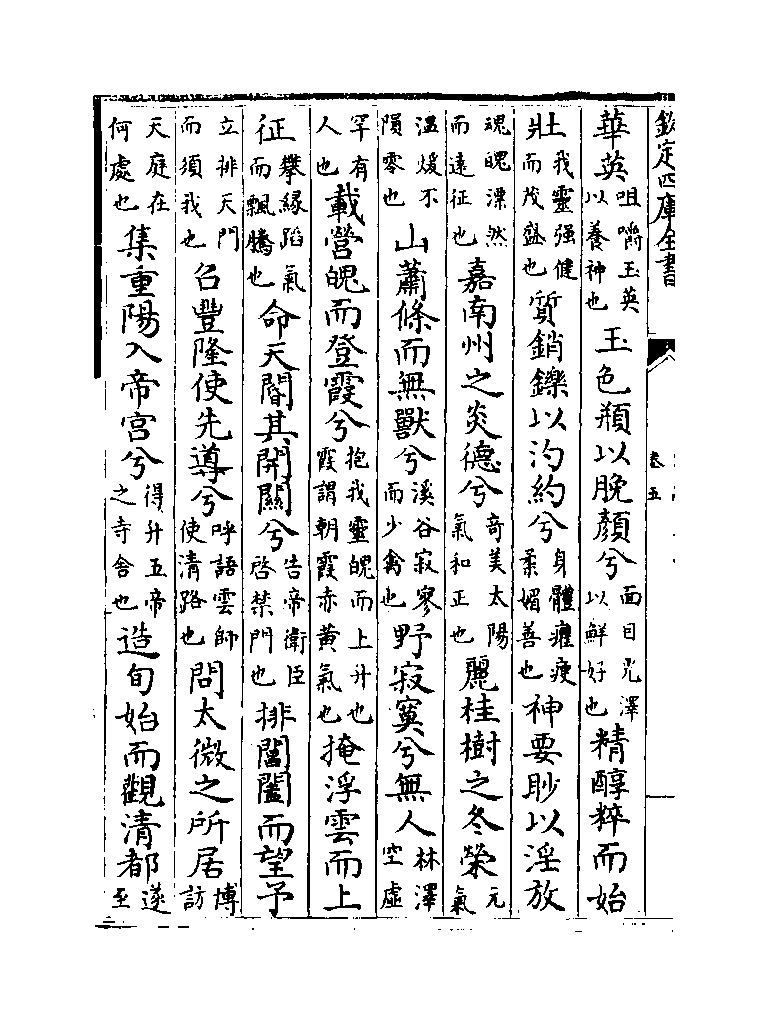 欽定四庫全書
卷五
華英咀嚼玉英以養神也玉色頩以脕顏兮面目光澤以鮮好也精醇粹而始
壯我靈强健而茂盛也質銷鑠以汋約兮身體癯瘦柔媚善也神要眇以淫放
魂魄漂然而遠征也嘉南州之炎德兮竒美太陽氣和正也麗桂樹之冬榮元氣
温煖不隕零也山蕭條而無獸兮溪谷寂寥而少禽也野寂寞兮無人林澤空虛
罕有人也載營魄而登霞兮抱我靈魄而上升也霞謂朝霞赤黄氣也掩浮雲而上
征攀緣蹈氣而飄騰也命天閽其開關兮告帝衛臣啓禁門也排閶闔而望予
立排天門而須我也召豐隆使先導兮呼語雲師使清路也問太微之所居博訪
天庭在何處也集重陽入帝宮兮得升五帝之寺舍也造旬始而觀清都遂至